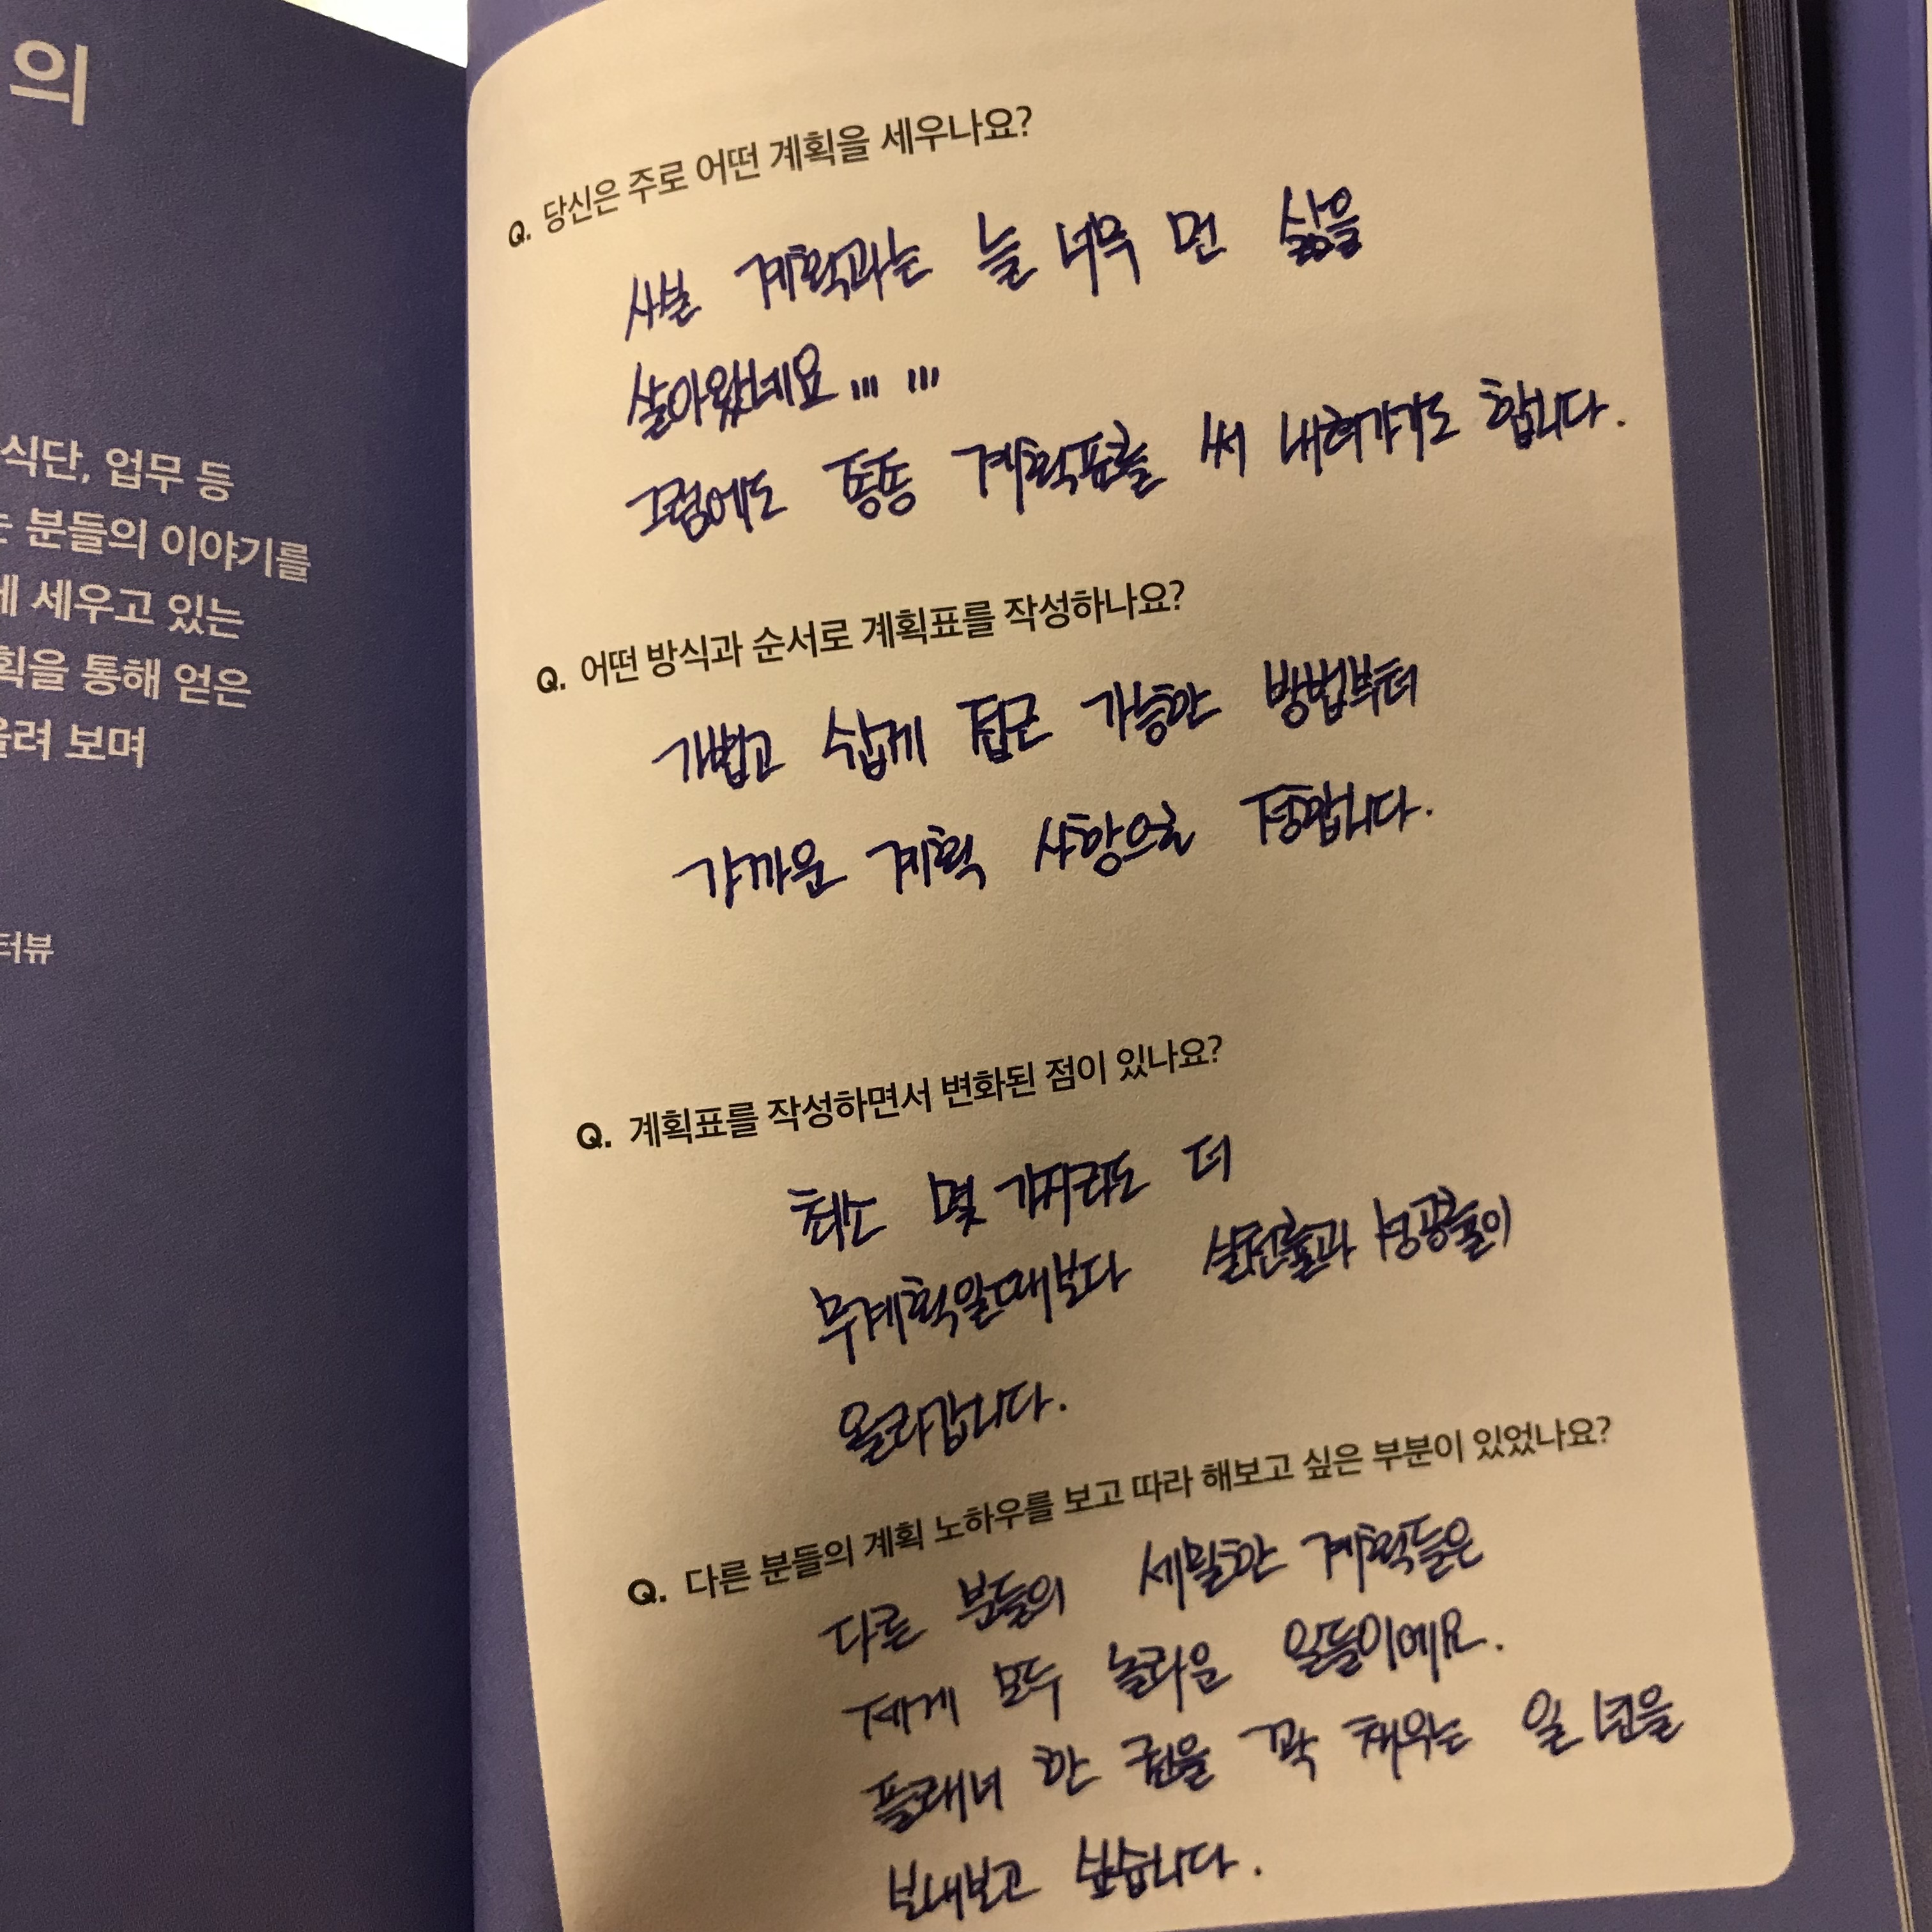 의
식단, 업무 등
는 분들의 이야기를
세우고 있는
획을 통해 얻은
올려 보며
터뷰
Q. 당신은 주로 어떤 계획을 세우나요?
사실 계획과는 늘 너무 먼 삶을
살아왔네요... ...
그럼에도 통통 계획표를 써 내려가기도 합니다.
Q. 어떤 방식과 순서로 계획표를 작성하나요?
가볍고 쉽게 접근 가능한 방법부터
가까운 계획 사항으로 정합니다.
Q. 계획표를 작성하면서 변화된 점이 있나요?
최소 몇 가지라도 더
무계획일때보다 실천률과 성공률이
올라갑니다.
Q. 다른 분들의 계획 노하우를 보고 따라 해보고 싶은 부분이 있었나요?
다른 분들의 세밀한 계획들은
제게 모두 놀라운 일들이에요.
플래너 한 권을 꽉 채우는 일 년을
보내보고 싶습니다.